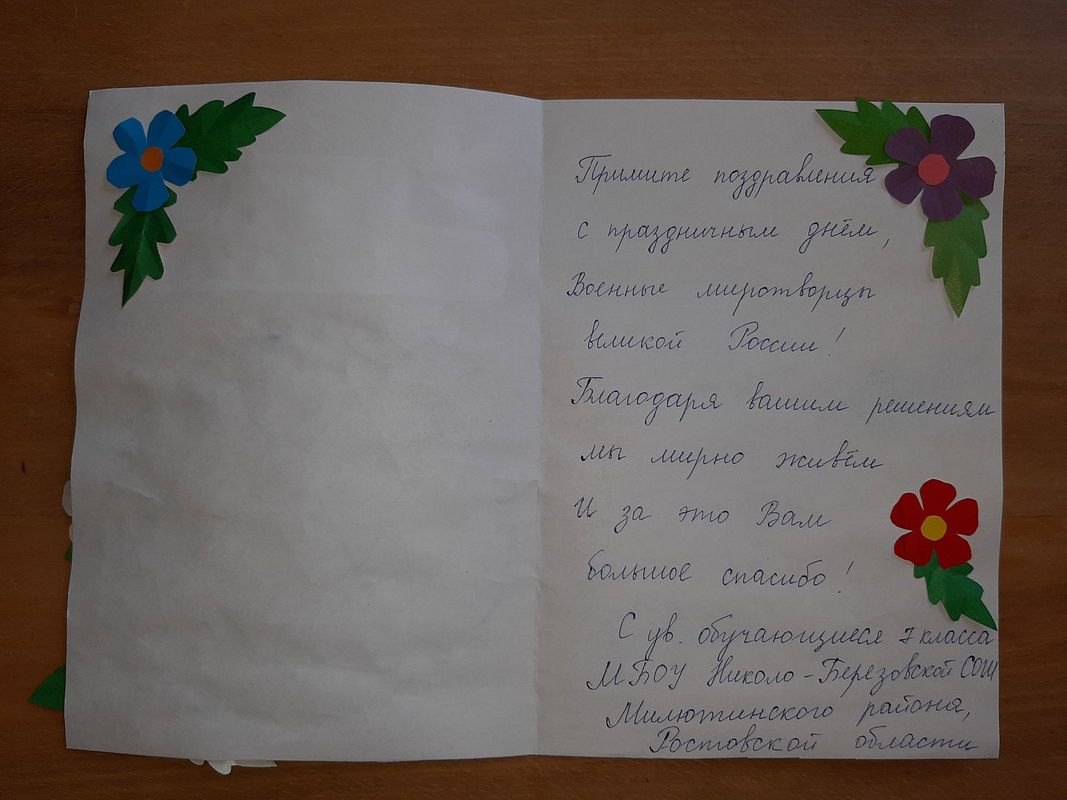 Примите поздравления
с праздничным днём,
Военные миротворцы
великой России!
Благодаря вашим решениям
мы мирно живём
И за это Вам
большое спасибо!
С ув. обучающиеся 7 класса
МБОУ Николо-Березовской СОШ
Милютинского района,
Ростовской области